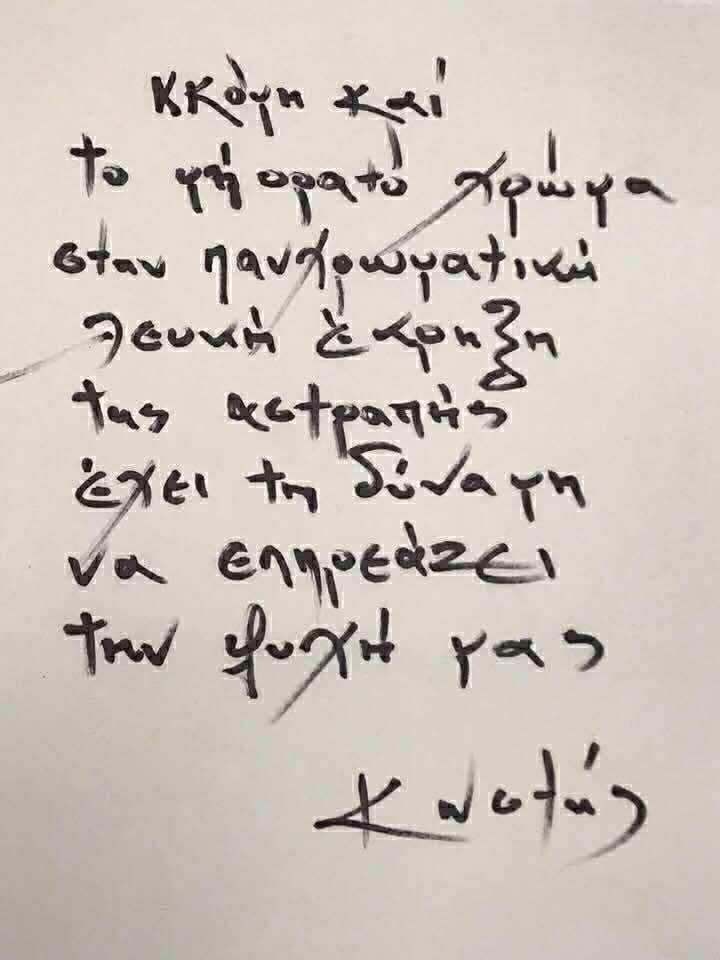 Ακόμη και
το μή ορατό χρώμα
στην πανχρωματική
λευκή έκρηξη
της αστραπής
έχει τη δύναμη
να επηρεάζει
την ψυχή μας
Κωστής